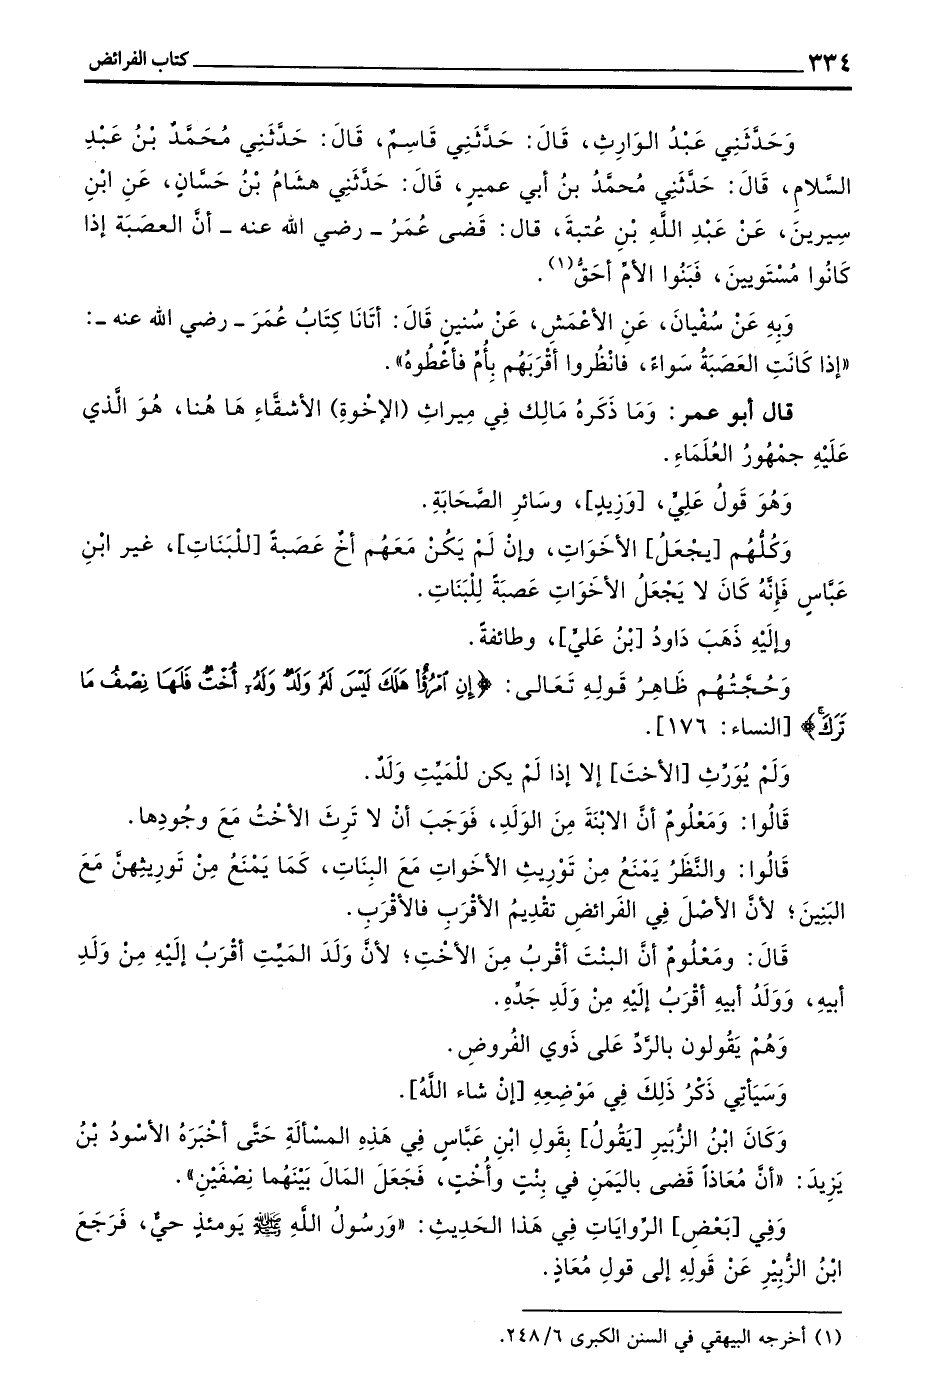 ٣٣٤ كتاب الفرائض
وَحَدَّثَنِي عَبْدُ الوَارِثِ، قَالَ: حَدَّثَنِي قَاسِمٌ، قَالَ: حَدَّثَنِي مُحَمَّدُ بْنُ عَبْدِ
السَّلامِ، قَالَ: حَدَّثَنِي مُحمَّدُ بنُ أبي عميرٍ، قَالَ: حَدَّثَنِي هشَامُ بْنُ حَسَّانٍ، عَنِ ابْنِ
سِيرينَ، عَنْ عَبْدِ اللَّهِ بْنِ عُتبةَ، قال: قَضى عُمَرُ ـ رضي الله عنه ـ أنَّ العصَبَة إذا
كَانُوا مُسْتَويينَ، فَبَنُوا الأمِّ أحَقُّ(١).
وَبِهِ عَنْ سُفْيَانَ، عَنِ الأعْمَشِ، عَنْ سُنينٍ قَالَ: أتَانَا كِتَابُ عُمَرَ ـ رضي الله عنه ـ:
«إذا كَانَتِ العَصَبَةُ سَواءً، فانْظُروا أقْرَبَهُم بِأُمٍّ فأعْطُوهُ».
قال أبو عمر: وَمَا ذَكَرهُ مَالِك فِي مِيراثِ (الإخْوةِ) الأشقَّاءِ هَا هُنا، هُوَ الَّذي
عَلَيْهِ جمْهُورُ العُلَمَاءِ.
وَهُوَ قَولُ عَلِيٍّ، [وَزيدٍ]، وسَائرِ الصَّحَابَةِ.
وَكُلُّهُم [يجْعَلُ] الأخَوَاتِ، وإنْ لَمْ يَكُنْ مَعَهُم أخٌ عَصَبةً [للْبَنَاتِ]، غير ابْنِ
عَبَّاسٍ فَإنَّهُ كَانَ لا يَجْعَلُ الأخَوَاتِ عَصبَةً لِلْبَنَاتِ.
وإلَيْهِ ذَهَبَ دَاودُ [بْنُ عَليٍّ]، وطائفةٌ.
وَحُجَّتُهُم ظَاهِرُ قَولِهِ تَعَالى: ﴿إِنِ ٱمْرُؤٌا۟ هَلَكَ لَيْسَ لَهُۥ وَلَدٌ وَلَهُۥٓ أُخْتٌ فَلَهَا نِصْفُ مَا
تَرَكَ﴾ [النساء: ١٧٦].
وَلَمْ يُوَرِّثِ [الأختَ] إلا إذا لَمْ يكن للْمَيِّتِ وَلَدٌ.
قَالُوا: وَمَعْلُومٌ أنَّ الابْنَةَ مِنَ الوَلَدِ، فَوَجَبَ أنْ لا تَرِثَ الأخْتُ مَعَ وجُودِها.
قَالُوا: والنَّظَرُ يَمْنَعُ مِنْ تَوْريثِ الأخَواتِ مَعَ البنَاتِ، كَمَا يَمْنَعُ مِنْ تَوريثِهنَّ مَعَ
البَنِينَ؛ لأنَّ الأصْلَ فِي الفَرائضِ تقْدِيمُ الأقْرَبِ فالأقْرَبِ.
قَالَ: ومَعْلُومٌ أنَّ البنْتَ أقْربُ مِنَ الأخْتِ؛ لأنَّ وَلَدَ المَيِّتِ أقْرَبُ إلَيْهِ مِنْ وَلَدِ
أبيهِ، وَوَلَدُ أبيهِ أقْرَبُ إلَيْهِ مِنْ وَلَدِ جَدِّهِ.
وَهُمْ يَقُولون بالرَّدِّ عَلى ذَوِي الفُروضِ.
وَسَيَأتي ذَكْرُ ذَلِكَ فِي مَوْضِعِهِ [إنْ شاء اللَّهُ].
وَكَانَ ابْنُ الزُّبَيرِ [يَقُولُ] بِقَولِ ابْنِ عَبَّاسٍ فِي هَذِهِ المَسْألَةِ حَتَّى أخْبَرَهُ الأسْودُ بْنُ
يَزِيدَ: «أنَّ مُعَاذاً قَضى باليَمَنِ في بِنْتٍ وأُخْتٍ، فَجَعَلَ المَالَ بَيْنَهُما نِصْفَيْنِ».
وَفِي [بَعْضِ] الرِّوايَاتِ فِي هَذَا الحَدِيثِ: «وَرسُولُ اللَّهِ ﷺ يَومئذٍ حيٌّ، فَرَجَعَ
ابْنُ الزُّبيْرِ عَنْ قَولِهِ إلى قولِ مُعَاذٍ.
(١) أخرجه البيهقي في السنن الكبرى ٢٤٨/٦.